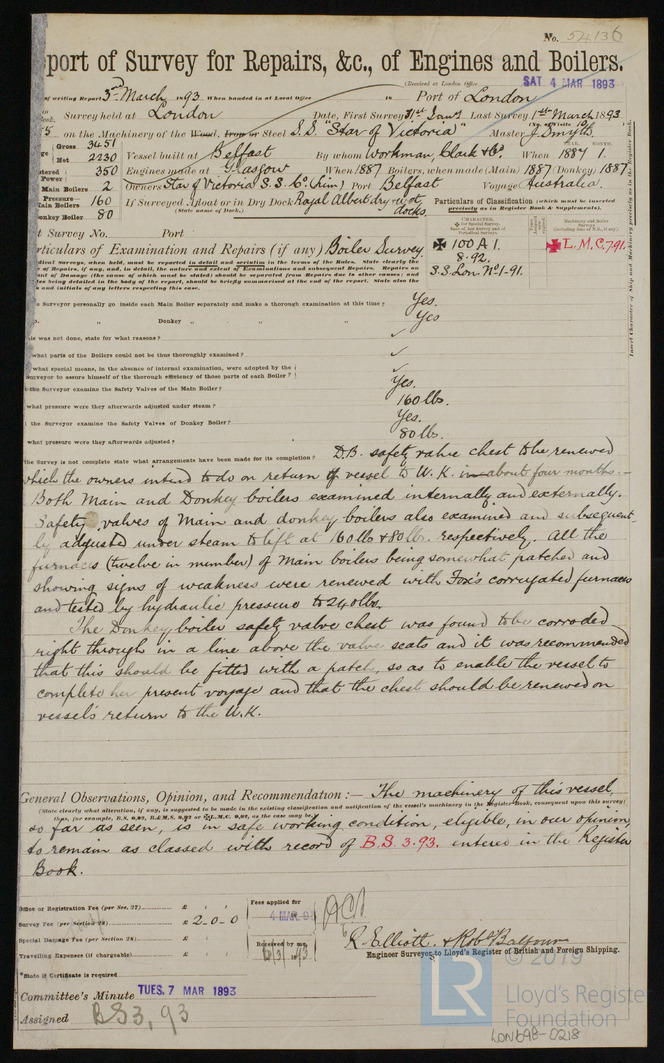 No. 54136
port of Survey for Repairs, &c., of Engines and Boilers.
(Received at London Office
SAT 4 MAR 1893
of writing Report 3rd March 1893 When handed in at Local Office 18 Port of London
Survey held at London Date, First Survey 31st Jany Last Survey 1st March 1893
(No. of Visits
on the Machinery of the Wood, Iron or Steel S.S. "Star of Victoria" Master J. Smyth.
Gross 3451
Net 2230 Vessel built at Belfast By whom Workman, Clark & Co. When 1887 1.
YEAR. MONTH.
350 Engines made at Glasgow When 1887 Boilers, when made (Main) 1887 (Donkey) 1887
Power
Main Boilers 2 Owners Star of Victoria S.S. Co. (Lim) Port Belfast Voyage Australia.
Pressure—
Main Boilers 160 If Surveyed Afloat or in Dry Dock Royal Albert dry & wet docks.
(State name of Dock.)
Donkey Boiler 80
Particulars of Classification (which must be inserted
precisely as in Register Book & Supplements).
CHARACTER.
Machinery and Boiler
Surveys
100 A 1.
8.92.
S.S. Lon. No 1-91.
L.M.C. 7.91.
Insert Character of Ship and Machinery precisely as in the Register Book.
t Survey No. Port
rticulars of Examination and Repairs (if any) Boiler Survey.
and initials of any letters respecting this case.
e Surveyor personally go inside each Main Boiler separately and make a thorough examination at this time? Yes.
o. " Donkey " " " Yes
is was not done, state for what reasons?
what parts of the Boilers could not be thus thoroughly examined?
what special means, in the absence of internal examination, were adopted by the
Surveyor to assure himself of the thorough efficiency of those parts of each Boiler?
the Surveyor examine the Safety Valves of the Main Boiler? Yes.
what pressure were they afterwards adjusted under steam? 160 lbs.
the Surveyor examine the Safety Valves of Donkey Boiler? Yes.
what pressure were they afterwards adjusted? 80 lbs.
the Survey is not complete state what arrangements have been made for its completion? D.B. safety valve chest to be renewed
which the owners intend to do on return of vessel to U.K. in about four months.—
Both Main and Donkey boilers examined internally and externally.
Safety valves of Main and donkey boilers also examined and subsequent-
ly adjusted under steam to lift at 160 lb & 80 lb. respectively. All the
furnaces (twelve in number) of Main boilers being somewhat patched and
showing signs of weakness were renewed with Fox's corrugated furnaces
and tested by hydraulic pressure to 240 lbs.
The Donkey boiler safety valve chest was found to be corroded
right through in a line above the valve seats and it was recommended
that this should be fitted with a patch, so as to enable the vessel to
complete her present voyage and that the chest should be renewed on
vessel's return to the U.K.
General Observations, Opinion, and Recommendation:— The machinery of this vessel,
(State clearly what alteration, if any, is suggested to be made in the existing classification and notification of the vessel's machinery in the Register Book, consequent upon this survey;
so far as seen, is in safe working condition, eligible, in our opinion
to remain as classed with record of B.S. 3.93. entered in the Register
Book.
Office or Registration Fee (per Sec. 27) £
Survey Fee (per Section 28) £ 2-0-0
Special Damage Fee (per Section 28) £
Travelling Expenses (if chargeable) £
Fees applied for
4 MAR 93
Received by me,
R. Elliott. & Robt Balfour
Engineer Surveyors to Lloyd's Register of British and Foreign Shipping.
State if Certificate is required
Committee's Minute TUES. 7 MAR 1893
Assigned BS 3, 93
© 2019
LR
Lloyd's Register
Foundation
LON698-0218